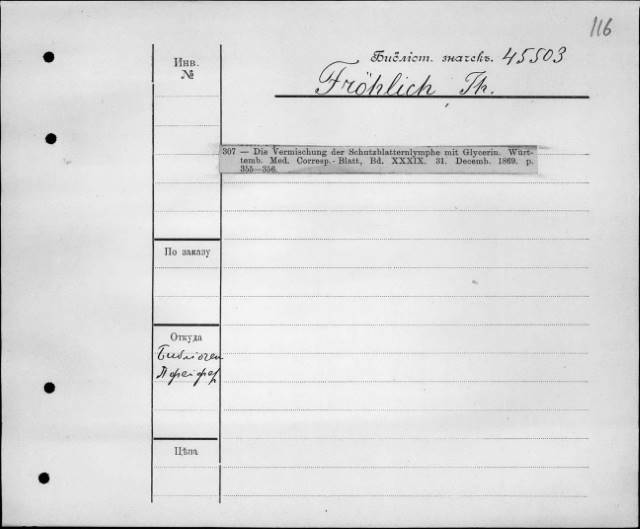 116
Инв.
№
Библіот. значекъ. 45503
Fröhlich Th.
307 — Die Vermischung der Schutzblatternlymphe mit Glycerin. Würt-
temb. Med. Corresp.-Blatt, Bd. XXXIX. 31. Decemb. 1869. p.
355—356.
По заказу
Откуда
Библіотек
Пфейфер
Цѣна